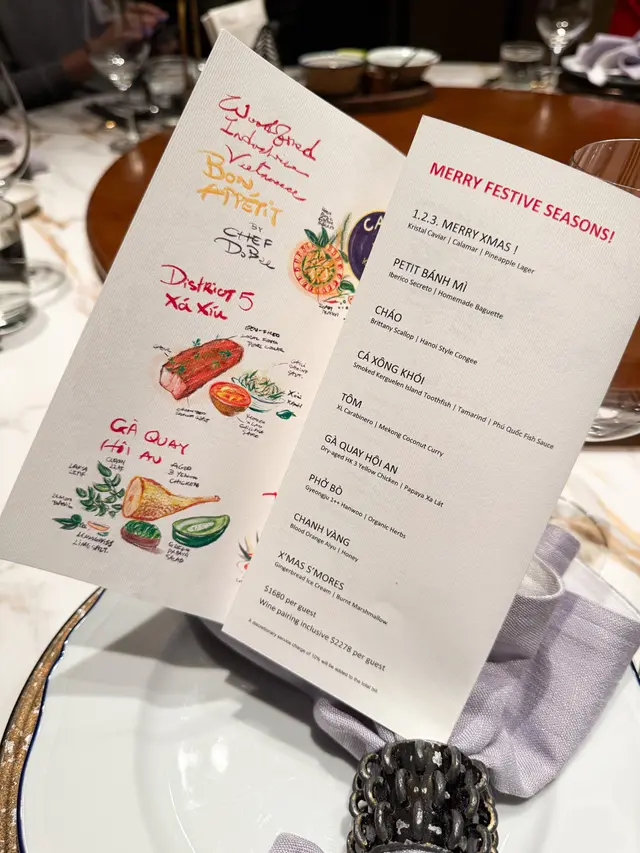 Woodfired
Indochina
Vietnamese
BON
APPÉTIT
BY
CHEF
DISTRICT 5
XÁ XÍU
GÀ QUAY
HỘI AN
AGED
3 YELLOW
CHICKEN
GREEN
PAPAYA
SALAD
MERRY FESTIVE SEASONS!
1.2.3. MERRY XMAS !
Kristal Caviar | Calamar | Pineapple Lager
PETIT BÁNH MÌ
Iberico Secreto | Homemade Baguette
CHÁO
Brittany Scallop | Hanoi Style Congee
CÁ XÔNG KHÓI
Smoked Kerguelen Island Toothfish | Tamarind | Phú Quốc Fish Sauce
TÔM
XL Carabinero | Mekong Coconut Curry
GÀ QUAY HỘI AN
Dry-aged HK 3 Yellow Chicken | Papaya Xa Lát
PHỞ BÒ
Gyeongu 1++ Hanwoo | Organic Herbs
CHANH VÀNG
Blood Orange Aiyu | Honey
X'MAS S'MORES
Gingerbread Ice Cream | Burnt Marshmallow
$1680 per guest
Wine pairing inclusive $2278 per guest
A discretionary service charge of 10% will be added to the total bill